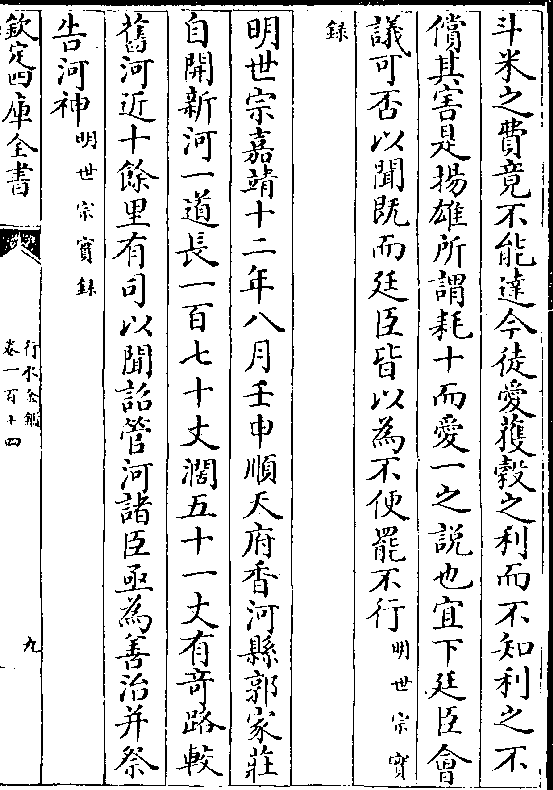 斗米之費竟不能達今徒愛獲穀之利而不知利之不
償其害是揚雄所謂耗十而愛一之說也宜下廷臣會
議可否以聞既而廷臣皆以為不便罷不行明世宗實
録
明世宗嘉靖十二年八月壬申順天府香河縣郭家莊
自開新河一道長一百七十丈濶五十一丈有竒路較
舊河近十餘里有司以聞詔管河諸臣亟為善治并祭
告河神明世宗實録
欽定四庫全書
行水金鑑
卷一百十四
九